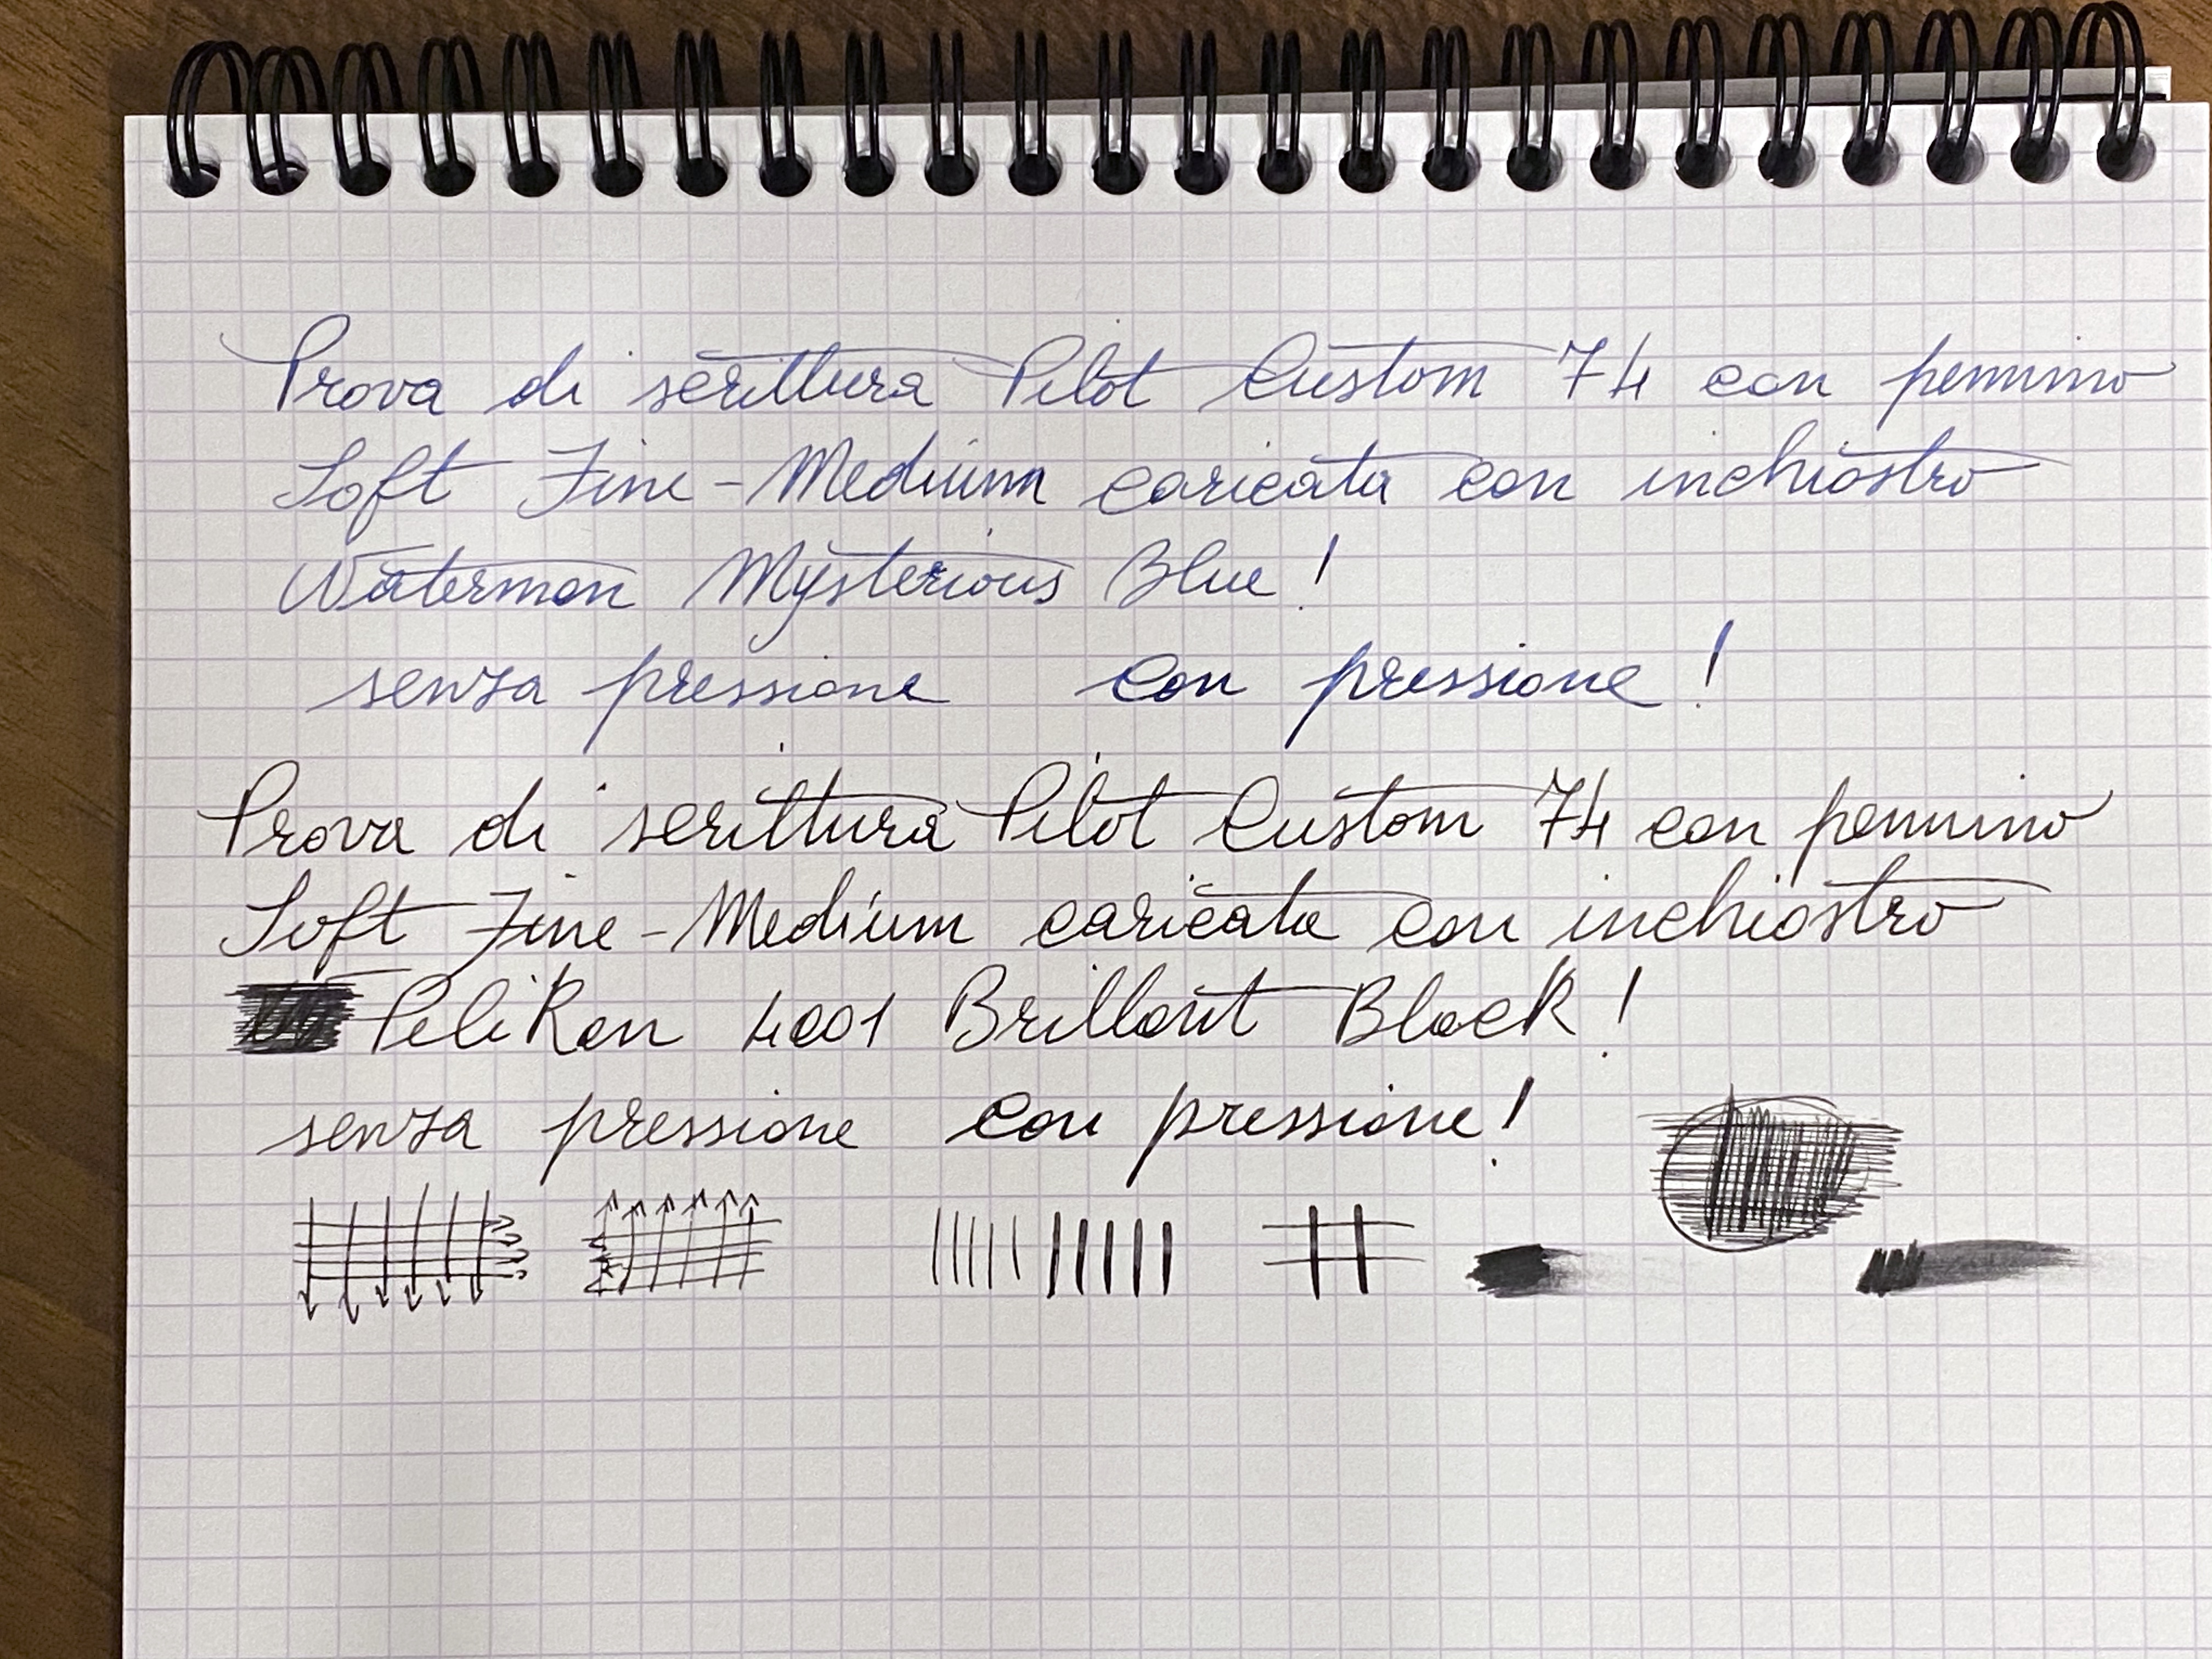 Prova di scrittura Pilot Custom 74 con pennino
Soft Fine-Medium caricata con inchiostro
Waterman Mysterious Blue!
senza pressione con pressione!
Prova di scrittura Pilot Custom 74 con pennino
Soft Fine-Medium caricata con inchiostro
Pelikan 4001 Brillant Black!
senza pressione con pressione!